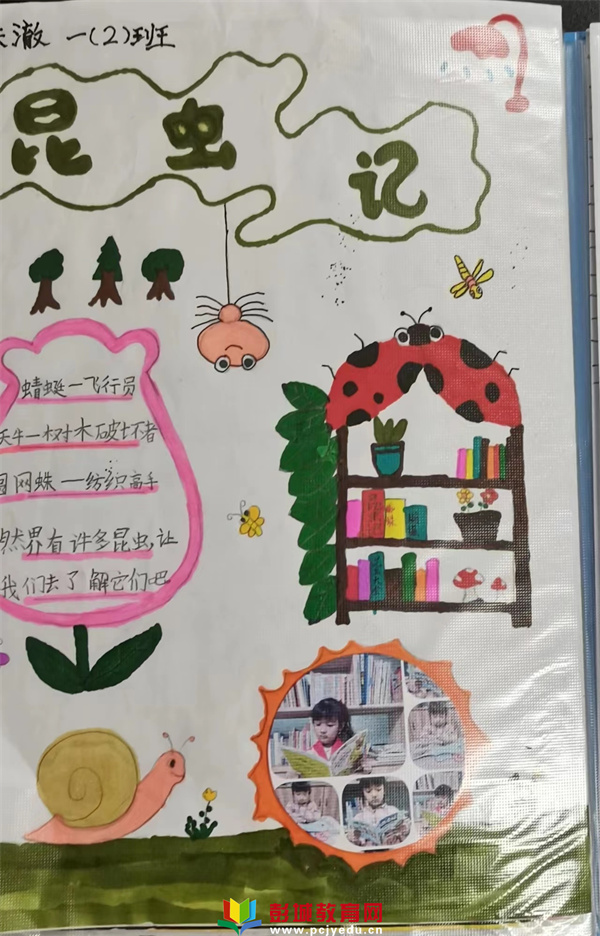 澈 一(2)班
昆虫记
蜻蜓一飞行员
牛一树木破坏者
网蛛一纺织高手
然界有许多昆虫,让
我们去了解它们吧
昆虫记
彭城教育网
www.pcjyedu.cn